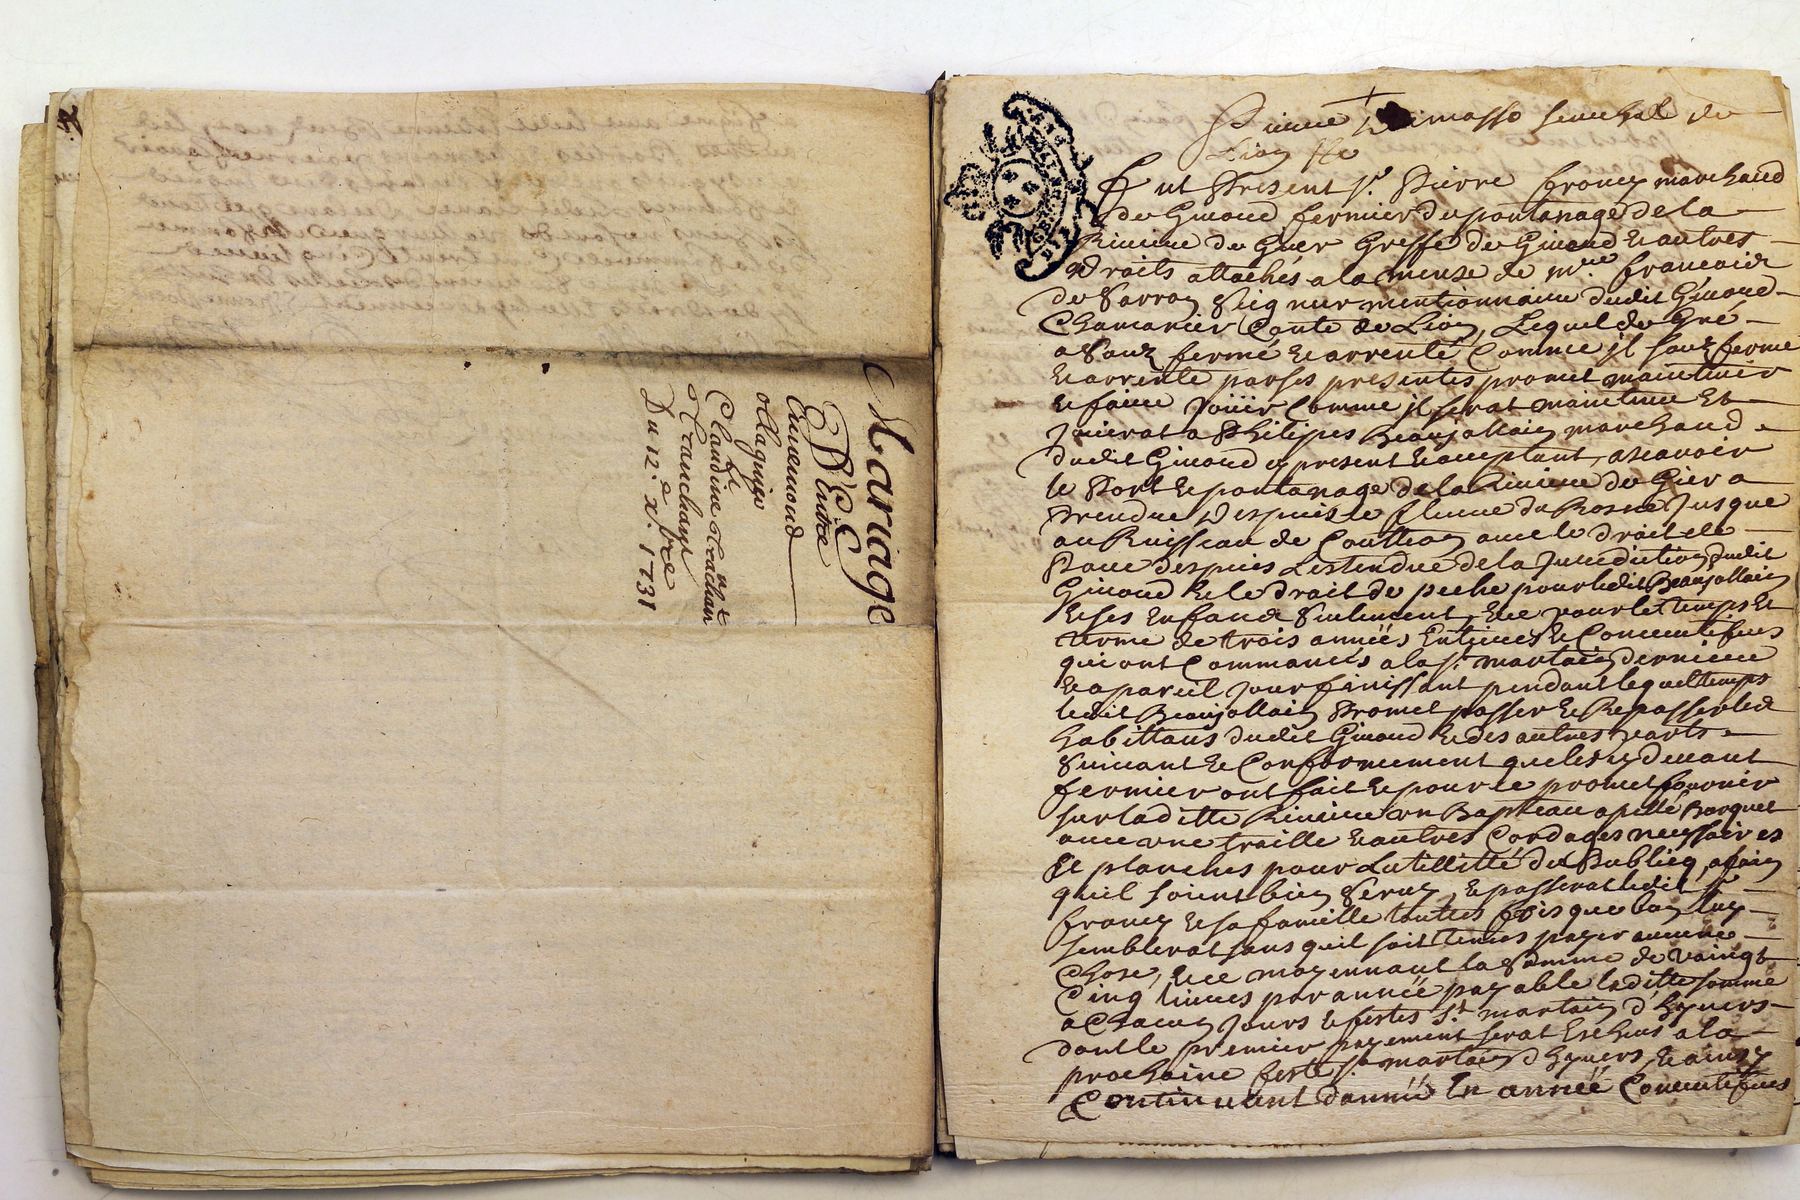 Mariage
D'Entre
Ennemond
Claudine tranchan
tranchant
Du 12.e x.bre 1731
Lion
Fut Present s.r Pierre francy marchand
de Givord fermier du pontanage de la
Riviere de Gier Greffe de Givord & autres
Droits attachés a la mense de m.re francois
de Sarron Seigneur mentionnaire dudit Givord
Chamarier Conte de Lion, Lequel de Gré
a Sauz fermé & arrenté Comme jl sauz ferme
& arrente par ses presentes promet maintenir
& faire joüir Comme jl serat maintenu Et
Joüirat a Philipes Beaujollain marchand
dudit Givord cy present & acceptant, ascavoir
le Port & pontanage de la Riviere de Gier a
Prendre Despuis le fleuve du Rosne Jusque
au Ruisseau de avec le droit de
despuis Lestendue de la Jurediction dudit
Givord & le droit de peche pour ledit Beaujollain
& ses Enfand Seulement, & ce pour le temps Et
terme de trois année Entieres & Consecutifves
qui ont Commancés a la s.t martain derniere
& a pareil jour finissant pendant lequel temps
ledit Beaujollain Promet passer & Repasser les
habittans dudit Givord & des autres parts
Suivant & Conformement que les cy devant
fermier ont fait & pour ce promet fournir
sur laditte Riviere un Bapteau apellé Barquet
avec une traille & autres Cordages nessaires
Et planches pour Lutillitté du Publicq, afain
quil soient bien Servy, & passerat ledit s.r
francy & sa famille toutes fois que bon luy
semblerat sans quil soit tenus payer aucune
Chose, & ce moyennant la Somme de vaingt
Cinq livres par année payable laditte somme
a Chacun jours & festes S.t martain d'hyvers
dont le premier payement serat Escheus a la
prochaine feste s.t martain d'hyvers, & ainsy
Continuant d'anneé En anneé Consecutifves